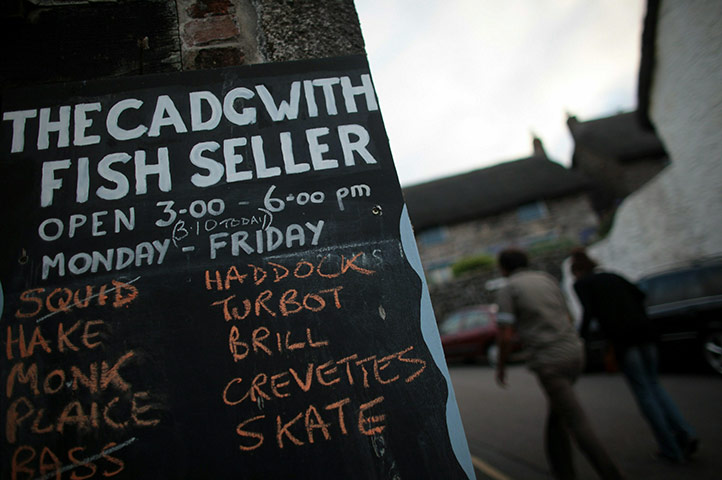 THE CADGWITH
FISH SELLER
OPEN 3.00 - 6.00 pm
(3.10 TODAY)
MONDAY - FRIDAY
SQUID
HAKE
MONK
PLAICE
BASS
HADDOCK
TURBOT
BRILL
CREVETTES
SKATE